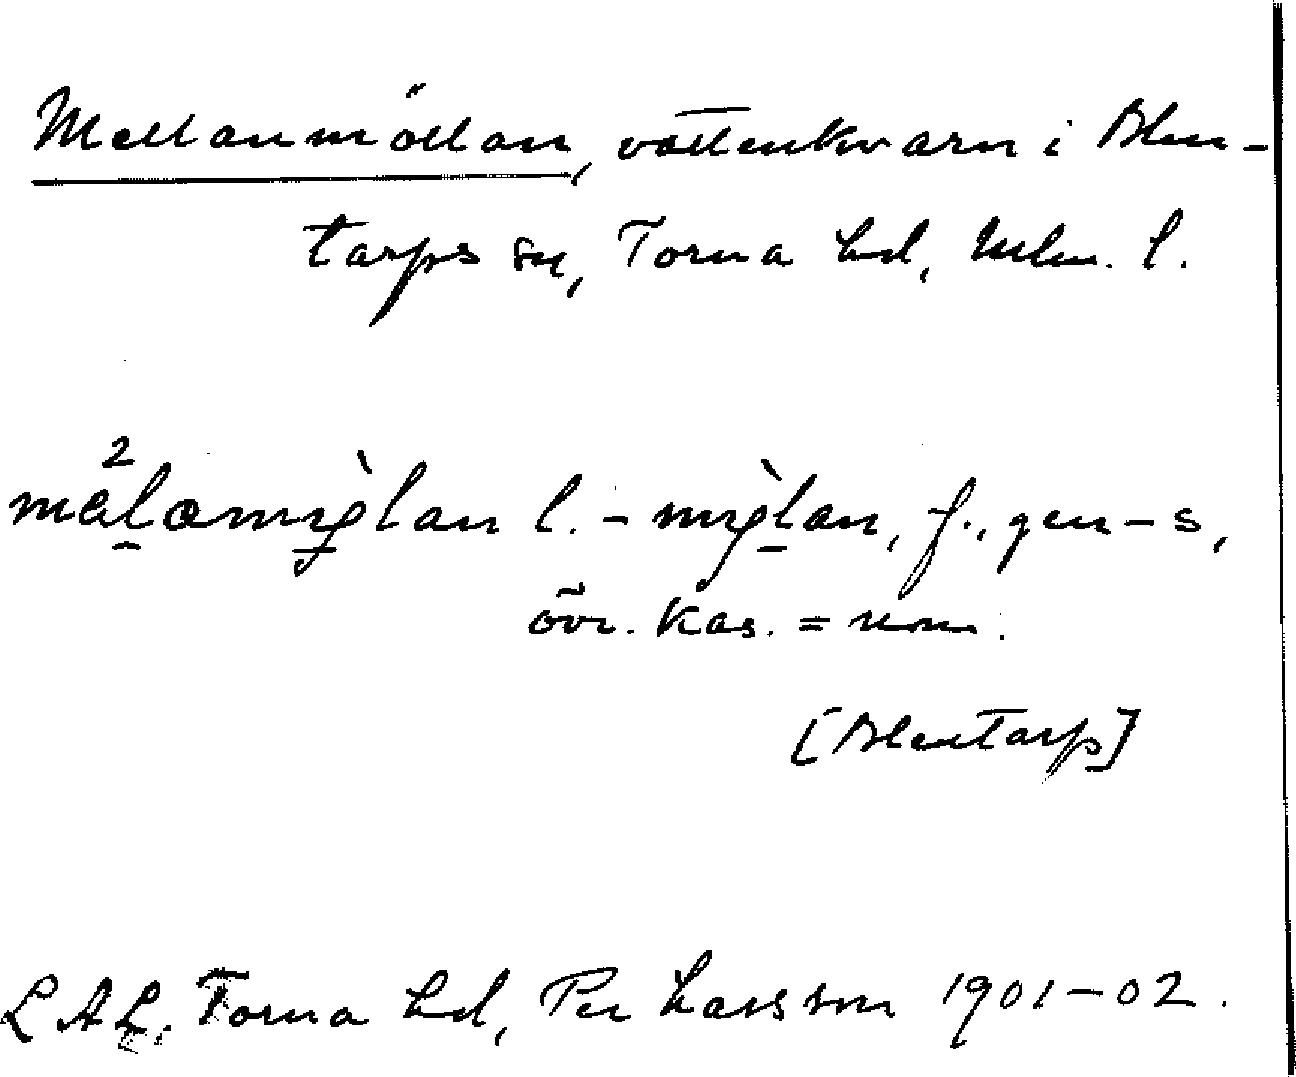 Mellanmöllan, vattenkvarn i Blen-
tarps sn, Torna hd, Mlm. l.
l. -
f., gen -s,
övr. kas. = nom.
[Blentarp]
LAL. Torna hd, Per Larsson 1901-02.